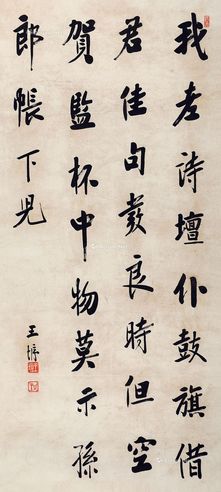 我老詩壇仆鼓旗借
君佳句發良時但空
賀監杯中物莫示孫
郎帳下兒
王垿